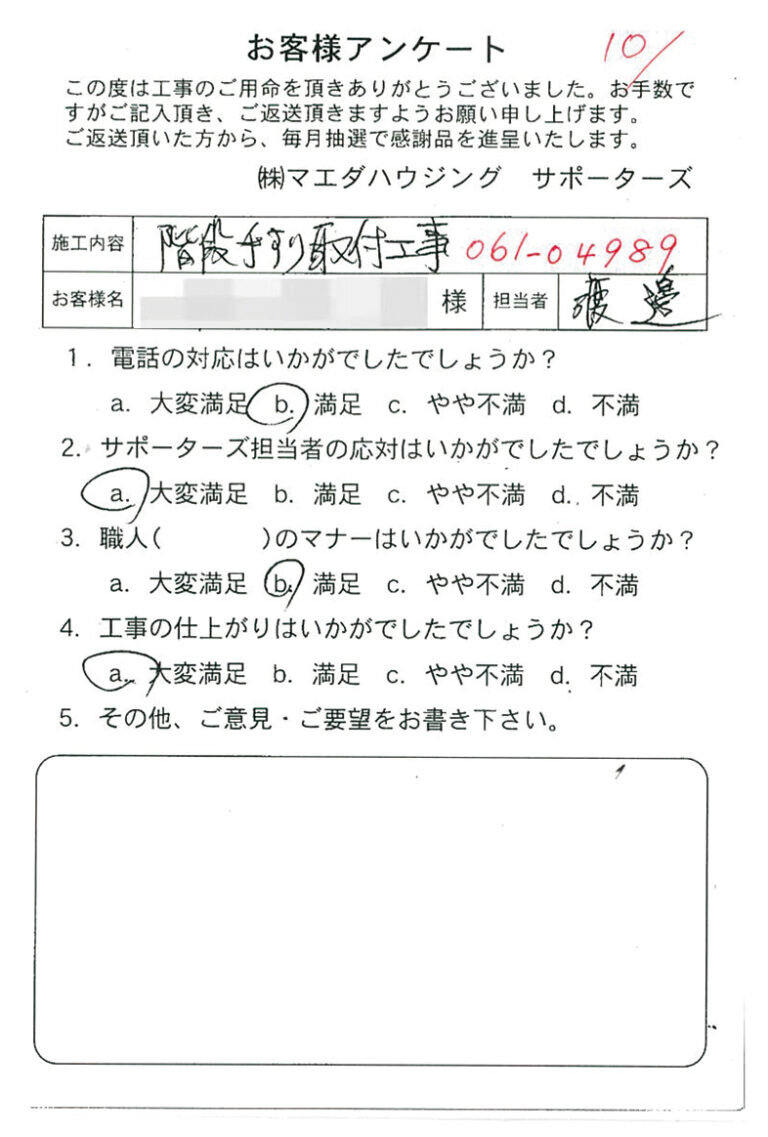 お客様アンケート 10/
この度は工事のご用命を頂きありがとうございました。お手数で
すがご記入頂き、ご返送頂きますようお願い申し上げます。
ご返送頂いた方から、毎月抽選で感謝品を進呈いたします。
㈱マエダハウジング サポーターズ
施工内容 階段手すり取付工事 061-04989
お客様名 様 担当者 渡邊
1. 電話の対応はいかがでしたでしょうか?
a. 大変満足 b. 満足 c. やや不満 d. 不満
2. サポーターズ担当者の応対はいかがでしたでしょうか?
a. 大変満足 b. 満足 c. やや不満 d. 不満
3. 職人( )のマナーはいかがでしたでしょうか?
a. 大変満足 b. 満足 c. やや不満 d. 不満
4. 工事の仕上がりはいかがでしたでしょうか?
a. 大変満足 b. 満足 c. やや不満 d. 不満
5. その他、ご意見・ご要望をお書き下さい。